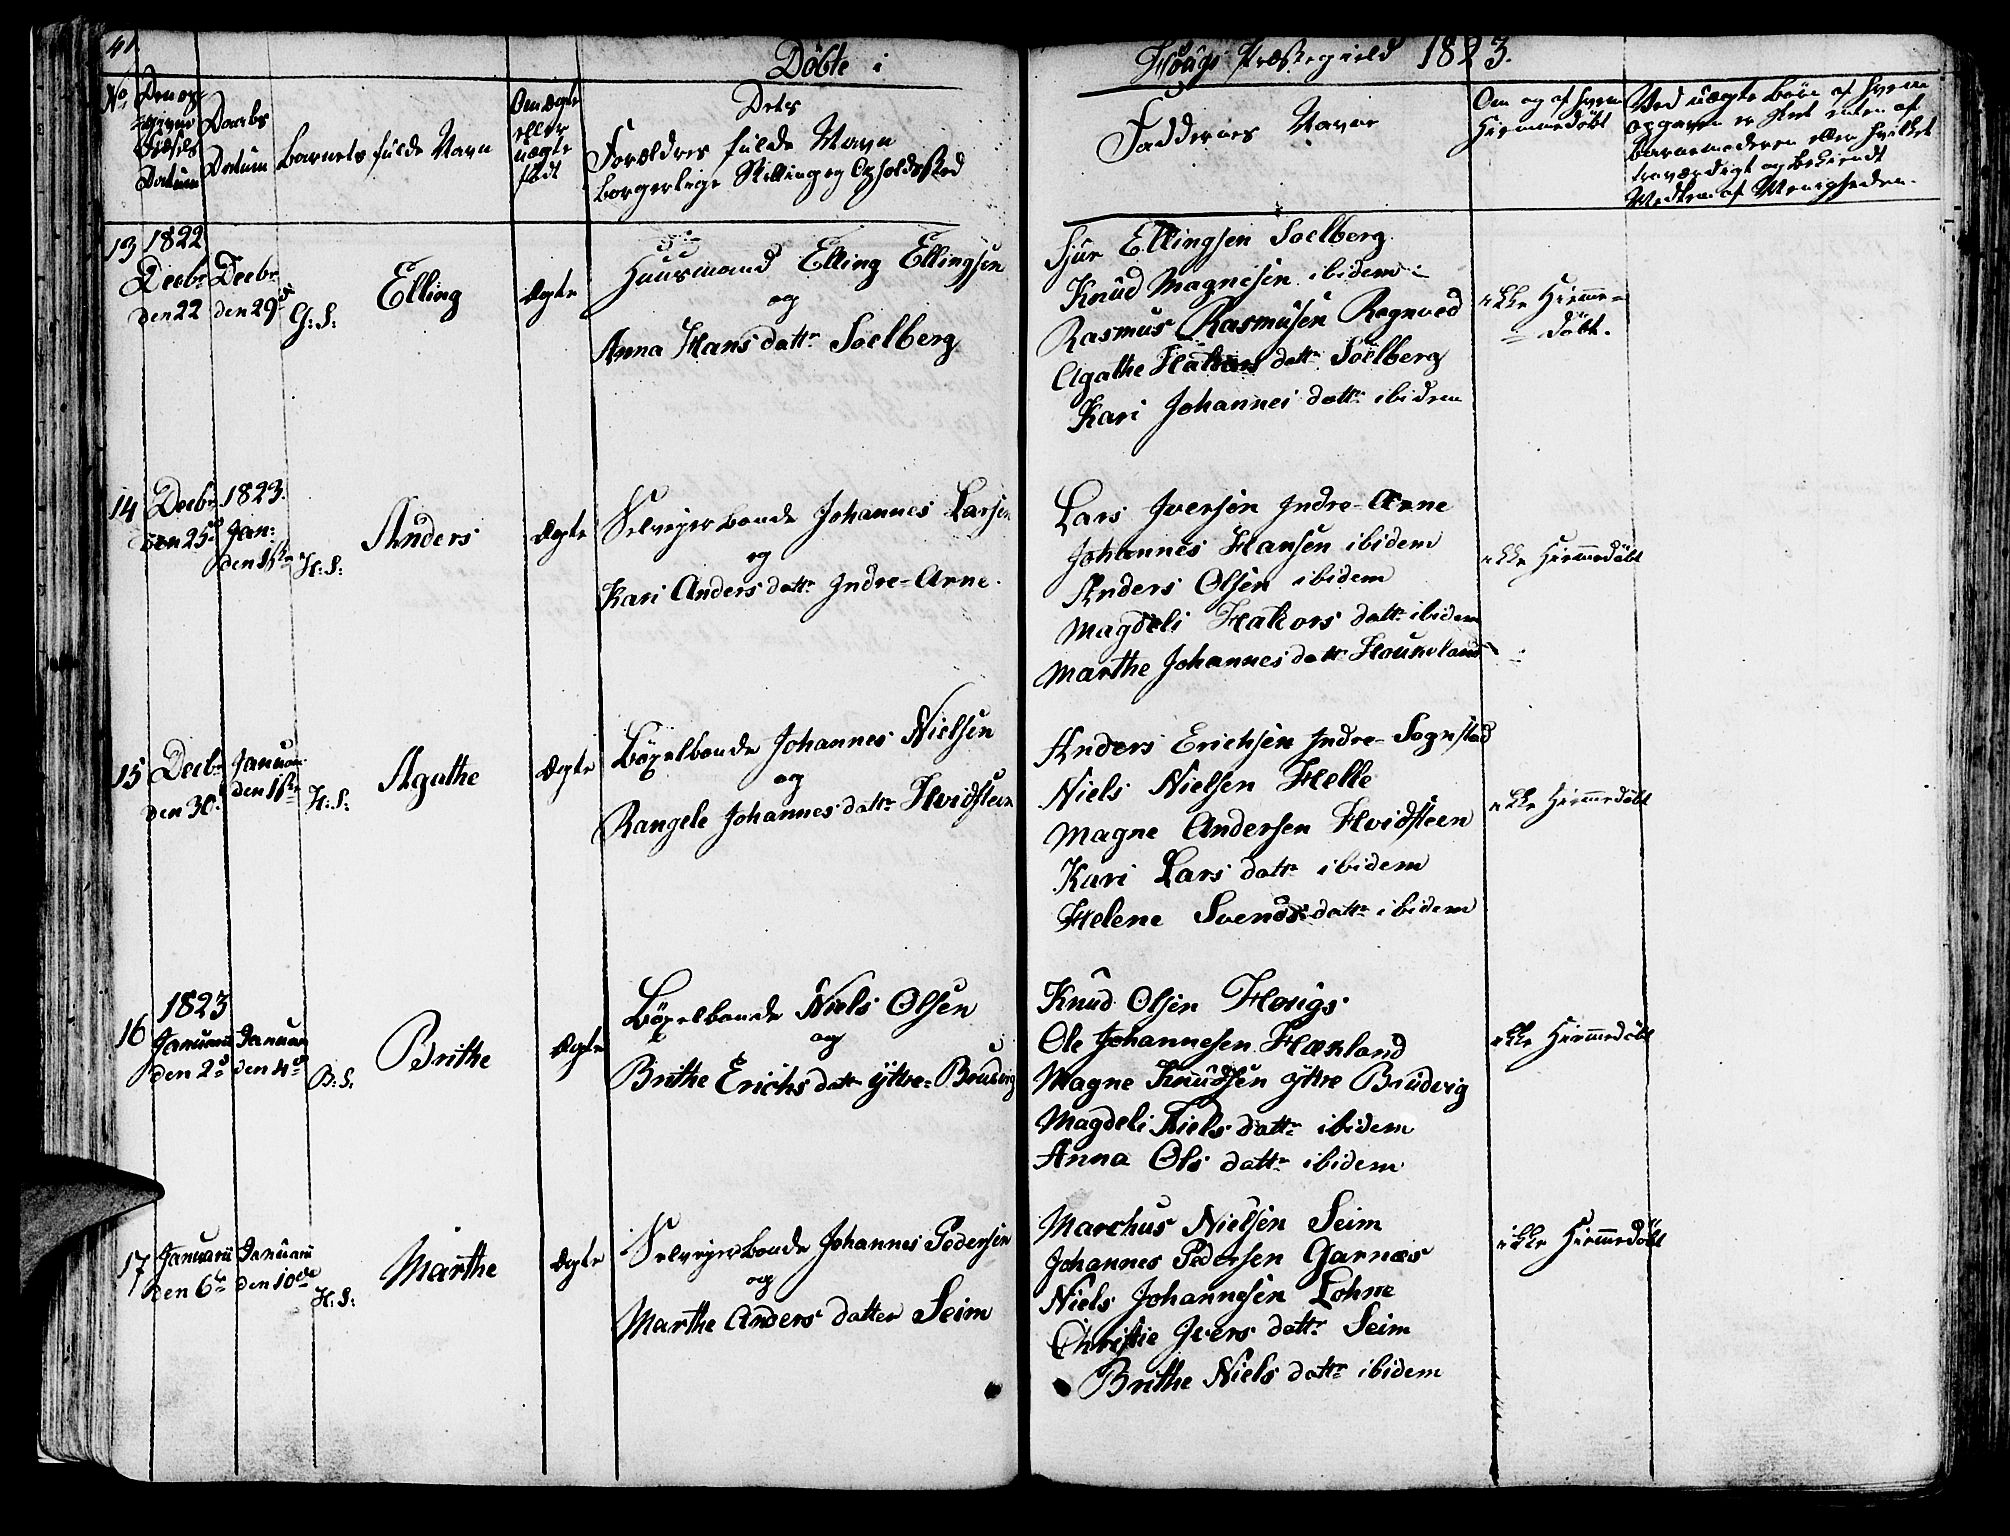 41
Döbte i Hougs Præstegield 1823.
No
Den opgivne Födsels Datum
Daabs Datum
Barnets fulde Navn
Om ægte eller uægte födt
Dets Forældres fulde Navn borgerlige Stilling og Opholdsted
Faddernes Navne
Om og af hvem Hiemmedöbt
Ved uægte Börn af hvem Opgaven er skeet enten af Barnemoderen eller hvilket troværdigt og bekiendt Medlem af Menigheden.
13
1822
Decbr den 22
Decbr den 29de
G: S:
Elling
Ægte
Huusmand Elling Ellingsen
og
Anna Hans dattr Soelberg
Sjur Ellingsen Soelberg
Knud Magnesen ibidem
Rasmus Rasmusen Rognved
Agathe Hakons dattr Soelberg
Kari Johannes dattr ibidem
ikke Hiemme=
=döbt.
14
Decbr den 25de
1823. Jan: den 1ste
H: S:
Anders
Ægte
Selveyerbonde Johannes Larsen
og
Kari Anders dattr Indre-Arne.
Lars Iversen Indre-Arne
Johannes Hansen ibidem
Anders Olsen ibidem
Magdeli Hakors dattr ibidem
Marthe Johannes dattr Houkeland
ikke Hiemmedöbt
15
Decbr den 30.
Januari den 1ste
H: S:
Agathe
Ægte
Böxelbonde Johannes Nielsen
og
Rangele Johannes dattr Hvidsteen
Anders Erichsen Indre-Sognstad
Niels Nielsen Helle
Magne Andersen Hvidsteen
Kari Lars dattr ibidem
Helene Svends dattr ibidem
ikke Hiemmedöbt
16
1823
Januarii den 2d
Januarii den 4d
B: S.
Brithe
Ægte
Böxelbonde Niels Olsen
og
Brithe Erichs dattr yttre-Brudvig
Knud Olsen Hougs
Ole Johannesen Hækland
Magne Knudsen yttre Brudvig
Magdeli Niels dattr ibidem
Anna Ols dattr ibidem
ikke Hiemmedöbt
17
Januarii den 6te
Januarii den 10de
H: S:
Marthe
Ægte
Selveyerbonde Johannes Pedersen
og
Marthe Anders datter Seim
Marchus Nielsen Seim
Johannes Pedersen Garnæs
Niels Johannesen Lohne
Christie Ivers dattr Seim
Brithe Niels dattr ibidem
ikke Hiemmedöbt